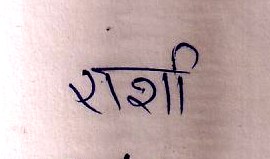 राशी